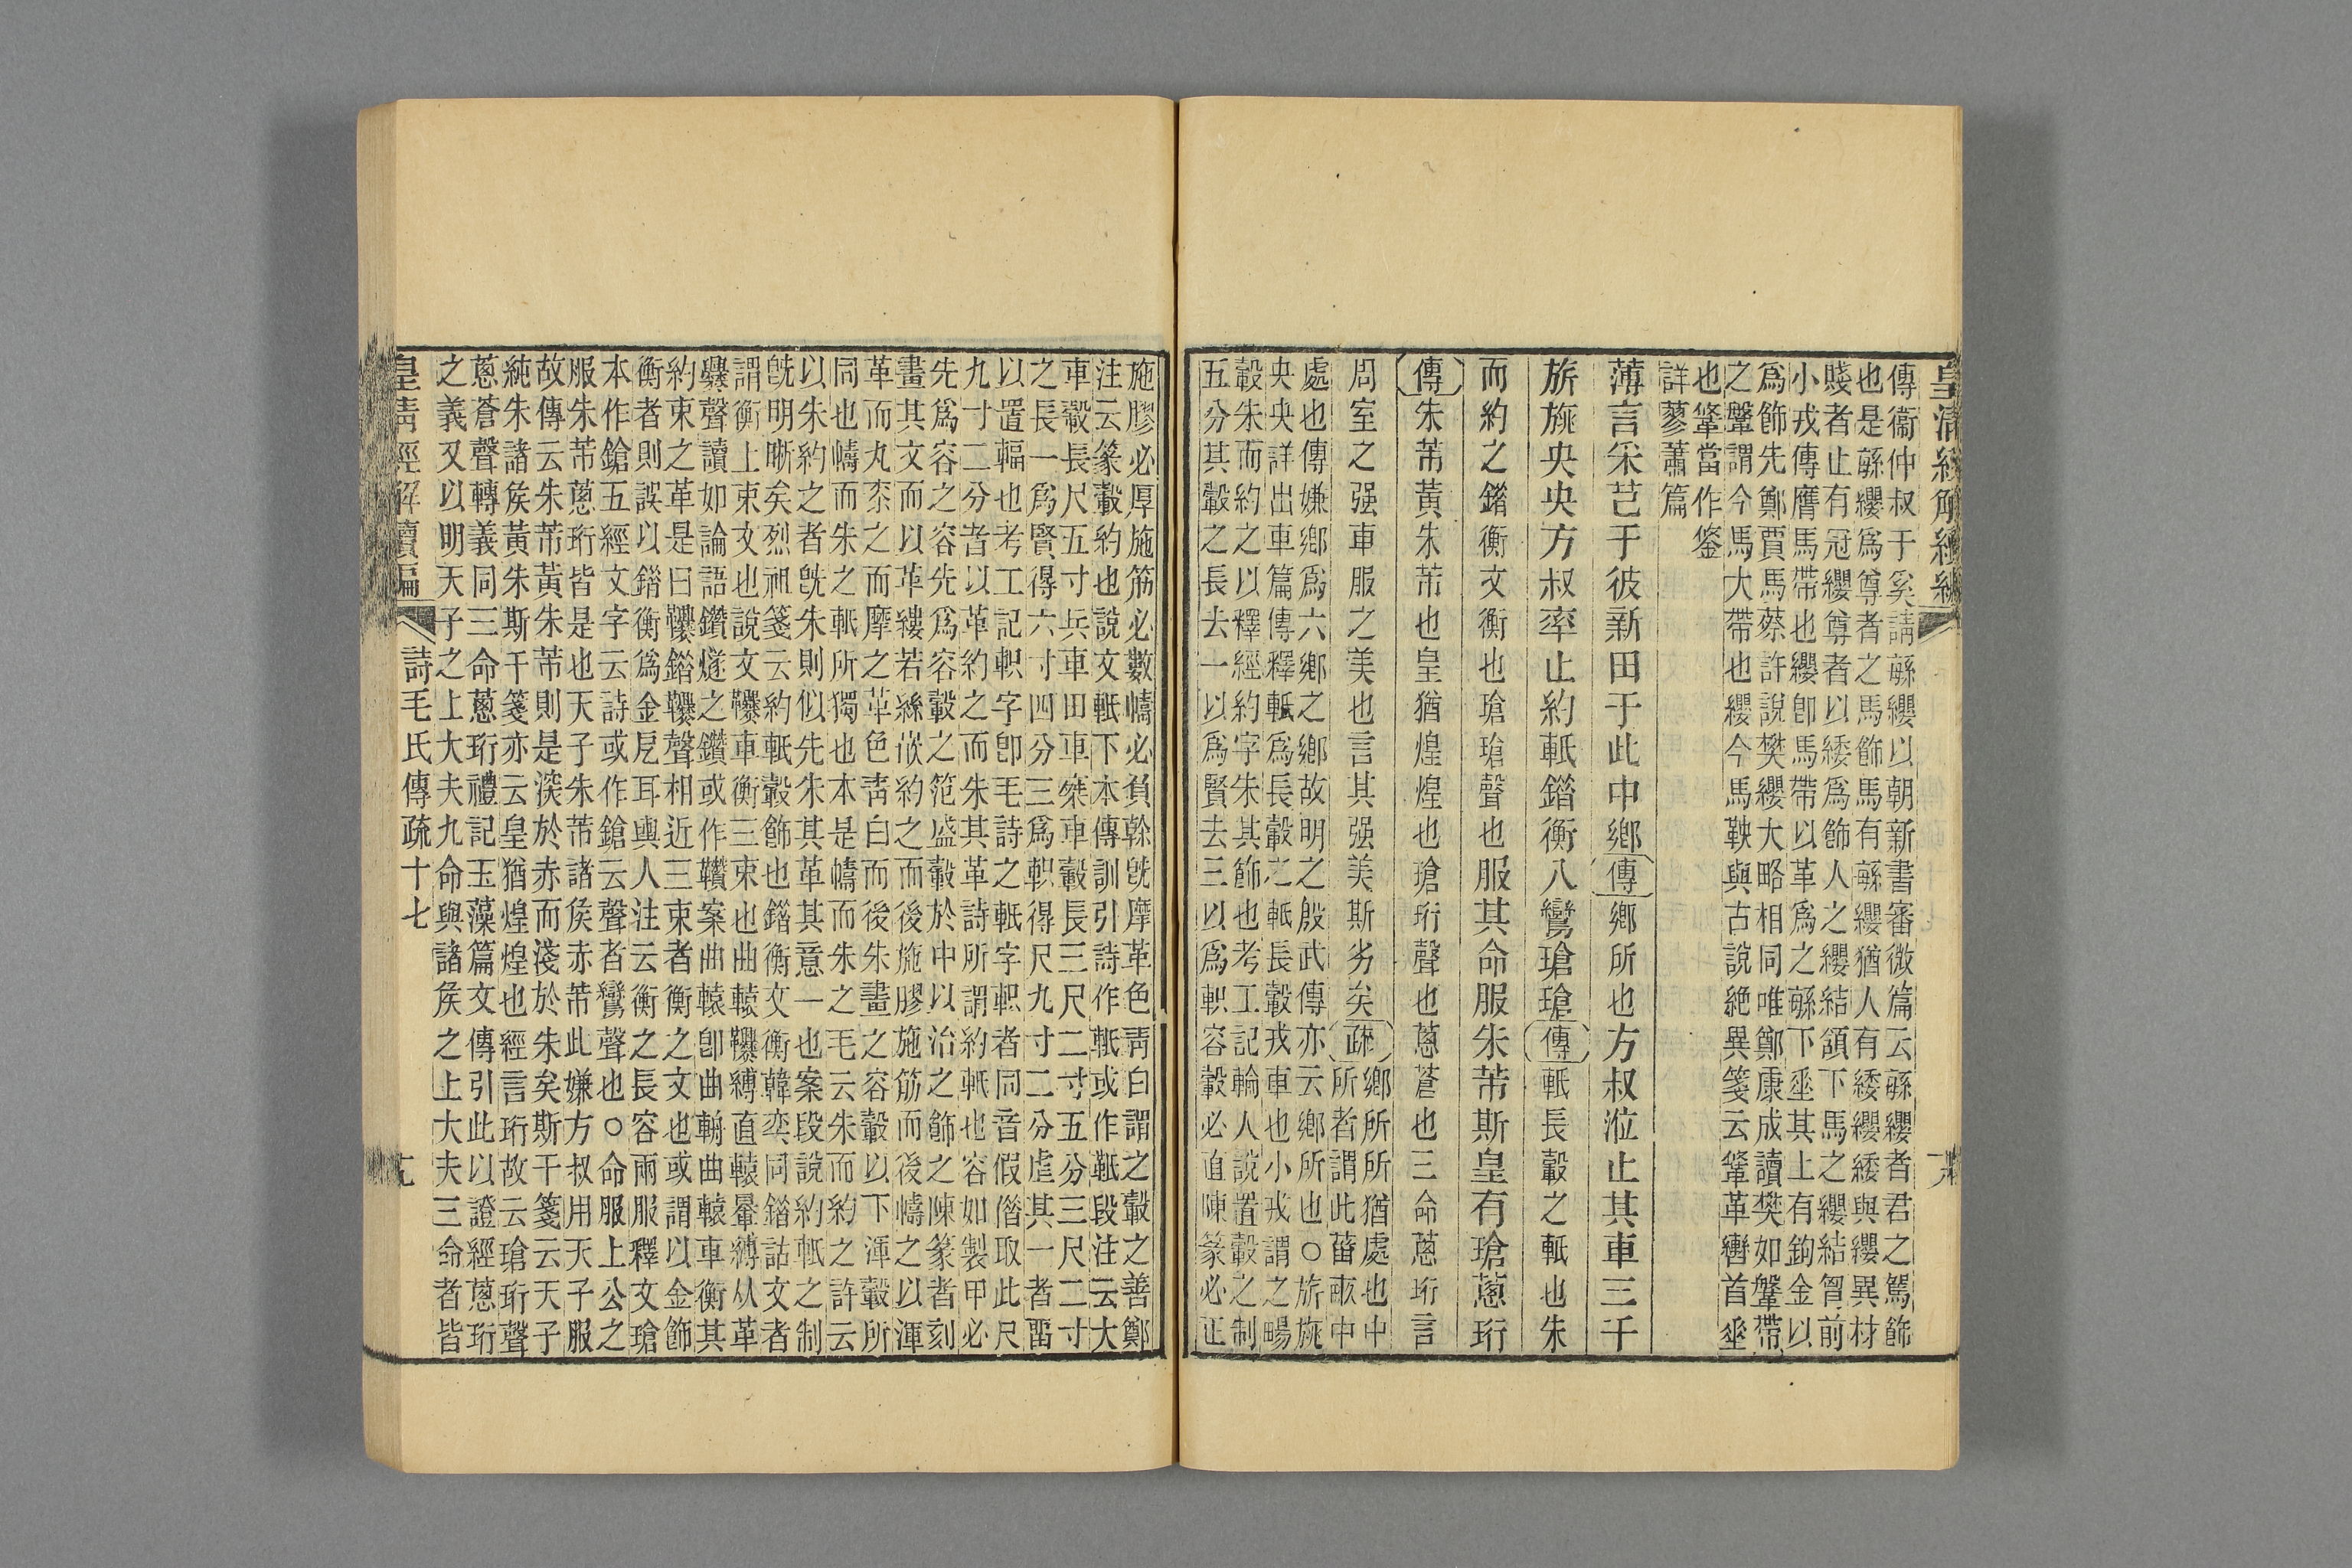 皇清經解續編
傳衞仲叔于奚請緐纓以朝新書審微篇云緐纓者君之駕飾
也是緐纓爲尊者之馬飾馬有緐纓猶人有緌纓緌與纓異材
賤者止有冠纓尊者以緌爲飾人之纓結頷下馬之纓結胷前
小戎傳膺馬帶也纓卽馬帶以革爲之緐下垂其上有鉤金以
爲飾先鄭賈馬蔡許說樊纓大略相同唯鄭康成讀樊如鞶帶
之鞶謂今馬大帶也纓今馬鞅與古說絶異箋云鞗革轡首垂
也鞗當作鋚
詳蓼蕭篇
薄言采芑于彼新田于此中鄕傳鄕所也方叔涖止其車三千
旂旐央央方叔率止約軝錯衡八鸞瑲瑲傳軝長轂之軝也朱
而約之錯衡文衡也瑲瑲聲也服其命服朱芾斯皇有瑲蔥珩
傳朱芾黃朱芾也皇猶煌煌也瑲珩聲也蔥蒼也三命蔥珩言
周室之强車服之美也言其强美斯劣矣疏鄕所所猶處也中
所者謂此菑畝中
處也傳嫌鄕爲六鄕之鄕故明之殷武傳亦云鄕所也○旂旐
央央詳出車篇傳釋軝爲長轂之軝長轂戎車也小戎謂之暢
轂朱而約之以釋經約字朱其飾也考工記輪人說置轂之制
五分其轂之長去一以爲賢去三以爲軹容轂必直陳篆必正
施膠必厚施筋必數幬必負幹旣摩革色靑白謂之轂之善鄭
注云篆轂約也說文軝下本傳訓引詩作軝或作䡋段注云大
車轂長尺五寸兵車田車桒車轂長三尺二寸五分三尺二寸
之長一爲賢得六寸四分三爲軹得尺九寸二分虛其一者畱
以置輻也考工記軹字卽毛詩之軝字軹者同音假偺取此尺
九寸二分者以革約之而朱其革詩所謂約軝也容如製甲必
先爲容之容先爲容轂之范盛轂於中以治之飾之陳篆者刻
畫其文而以革縷若絲嵌約之而後施膠施筋而後幬之以渾
革而丸桼之而摩之革色靑白而後朱畫之容轂以下渾轂所
同也幬而朱之軝所獨也本是幬而朱之毛云朱而約之許云
以朱約之者旣朱則似先朱其革其意一也案段說約軝之制
旣明晣矣烈祖箋云約軝轂飾也錯衡文衡韓奕同錯詁文者
謂衡上束文也說文䡺車衡三束也曲轅䡺縛直轅暈縛从革
爨聲讀如論語鑽燧之鑽或作鞼案曲轅卽曲輈曲轅車衡其
約束之革是曰䡺錯䡺聲相近三束者衡之文也或謂以金飾
衡者則誤以錯衡爲金厄耳輿人注云衡之長容兩服釋文瑲
本作鎗五經文字云詩或作鎗云聲者鸞聲也○命服上公之
服朱芾蔥珩皆是也天子朱芾諸侯赤芾此嫌方叔用天子服
故傳云朱芾黃朱芾則是淡於赤而淺於朱矣斯干箋云天子
純朱諸侯黃朱斯干箋亦云皇猶煌煌也經言珩故云瑲珩聲
蔥蒼聲轉義同三命蔥珩禮記玉藻篇文傳引此以證經蔥珩
之義又以明天子之上大夫九命與諸侯之上大夫三命者皆
皇淸經解續編
詩毛氏傳疏十七